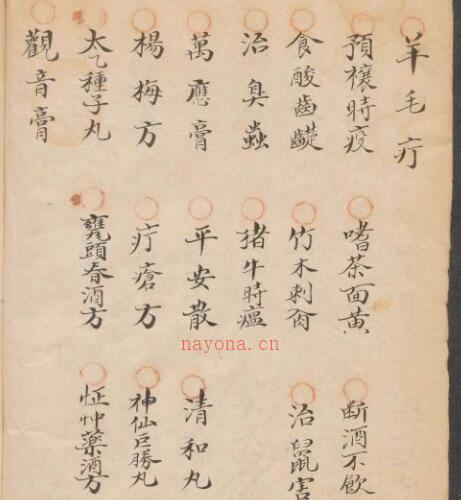 羊毛疔
預禳時疫 嗜茶面黄 断酒不飲
食酸齒齼 竹木刺肉 治鼠害
治臭蟲 猪牛時瘟
萬應膏 平安散 清和丸
楊梅方 疔瘡方 神仙巨勝丸
太乙種子丸 甕頭春酒方 怔忡藥酒方
觀音膏
nayona.cn